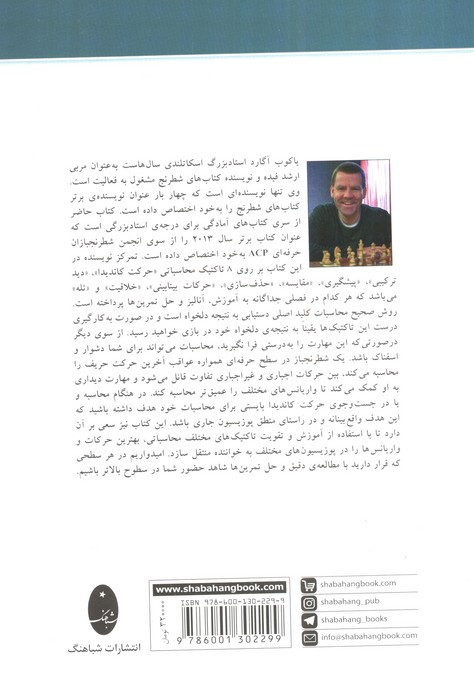 یاکوب آگارد استادبزرگ اسکاتلندی سال‌هاست به‌عنوان مربی
ارشد فیده و نویسنده کتاب‌های شطرنج مشغول به فعالیت است.
وی تنها نویسنده‌ای است که چهار بار عنوان نویسنده‌ی برتر
کتاب‌های شطرنج را به‌خود اختصاص داده است. کتاب حاضر
از سری کتاب‌های آمادگی برای درجه‌ی استادبزرگی است که
عنوان کتاب برتر سال ۲۰۱۳ را از سوی انجمن شطرنجبازان
حرفه‌ای ACP به‌خود اختصاص داده است. تمرکز نویسنده در
این کتاب بر روی ۸ تاکتیک محاسباتی «حرکت کاندیدا»، «دید
ترکیبی»، «پیشگیری»، «مقایسه»، «حذف‌سازی»، «حرکات بینابینی»، «خلاقیت» و «تله»
می‌باشد که هر کدام در فصلی جداگانه به آموزش، آنالیز و حل تمرین‌ها پرداخته است.
روش صحیح محاسبات کلید اصلی دستیابی به نتیجه دلخواه است و در صورت به‌کارگیری
درست این تاکتیک‌ها یقیناً به نتیجه‌ی دلخواه خود در بازی خواهید رسید. از سوی دیگر
درصورتی‌که این مهارت را به‌درستی فرا نگیرید، محاسبات می‌تواند برای شما دشوار و
اسفناک باشد. یک شطرنجباز در سطح حرفه‌ای همواره عواقب آخرین حرکت حریف را
محاسبه می‌کند. بین حرکات اجباری و غیراجباری تفاوت قائل می‌شود و مهارت دیداری
به او کمک می‌کند تا واریانس‌های مختلف را عمیق‌تر محاسبه کند. در هنگام محاسبه و
یا در جست‌وجوی حرکت کاندیدا بایستی برای محاسبات خود هدف داشته باشید که
این هدف واقع‌بینانه و در راستای منطق پوزیسیون جاری باشد. این کتاب نیز سعی بر آن
دارد تا با استفاده از آموزش و تقویت تاکتیک‌های مختلف محاسباتی، بهترین حرکات و
واریانس‌ها را در پوزیسیون‌های مختلف به خواننده منتقل سازد. امیدواریم در هر سطحی
که قرار دارید با مطالعه‌ی دقیق و حل تمرین‌ها شاهد حضور شما در سطوح بالاتر باشیم.
shabahangbook.com
shabahang_pub
shabahang_books
info@shabahangbook.com
www.shabahangbook.com
ISBN 978-600-130-229-9
9 786001 302299
۳۲۰۰۰۰ تومان
شباهنگ
انتشارات شباهنگ